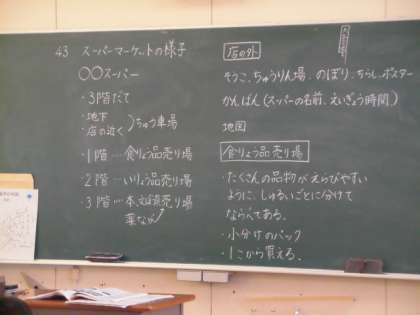 43 スーパーマーケットの様子
○○スーパー
・3階だて
・地下
・店の近く
ちゅう車場
・1階…食りょう品売り場
・2階…いりょう品売り場
・3階…本、文ぼう具売り場
薬など
店の外
そうこ、ちゅうりん場、のぼり、ちらし、ポスター
かんばん(スーパーの名前、えいぎょう時間)
地図
食りょう品売り場
・たくさんの品物がえらびやすい
ように、しゅるいごとに分けて
ならべてある。
・小分けのパック
・1こから買える。